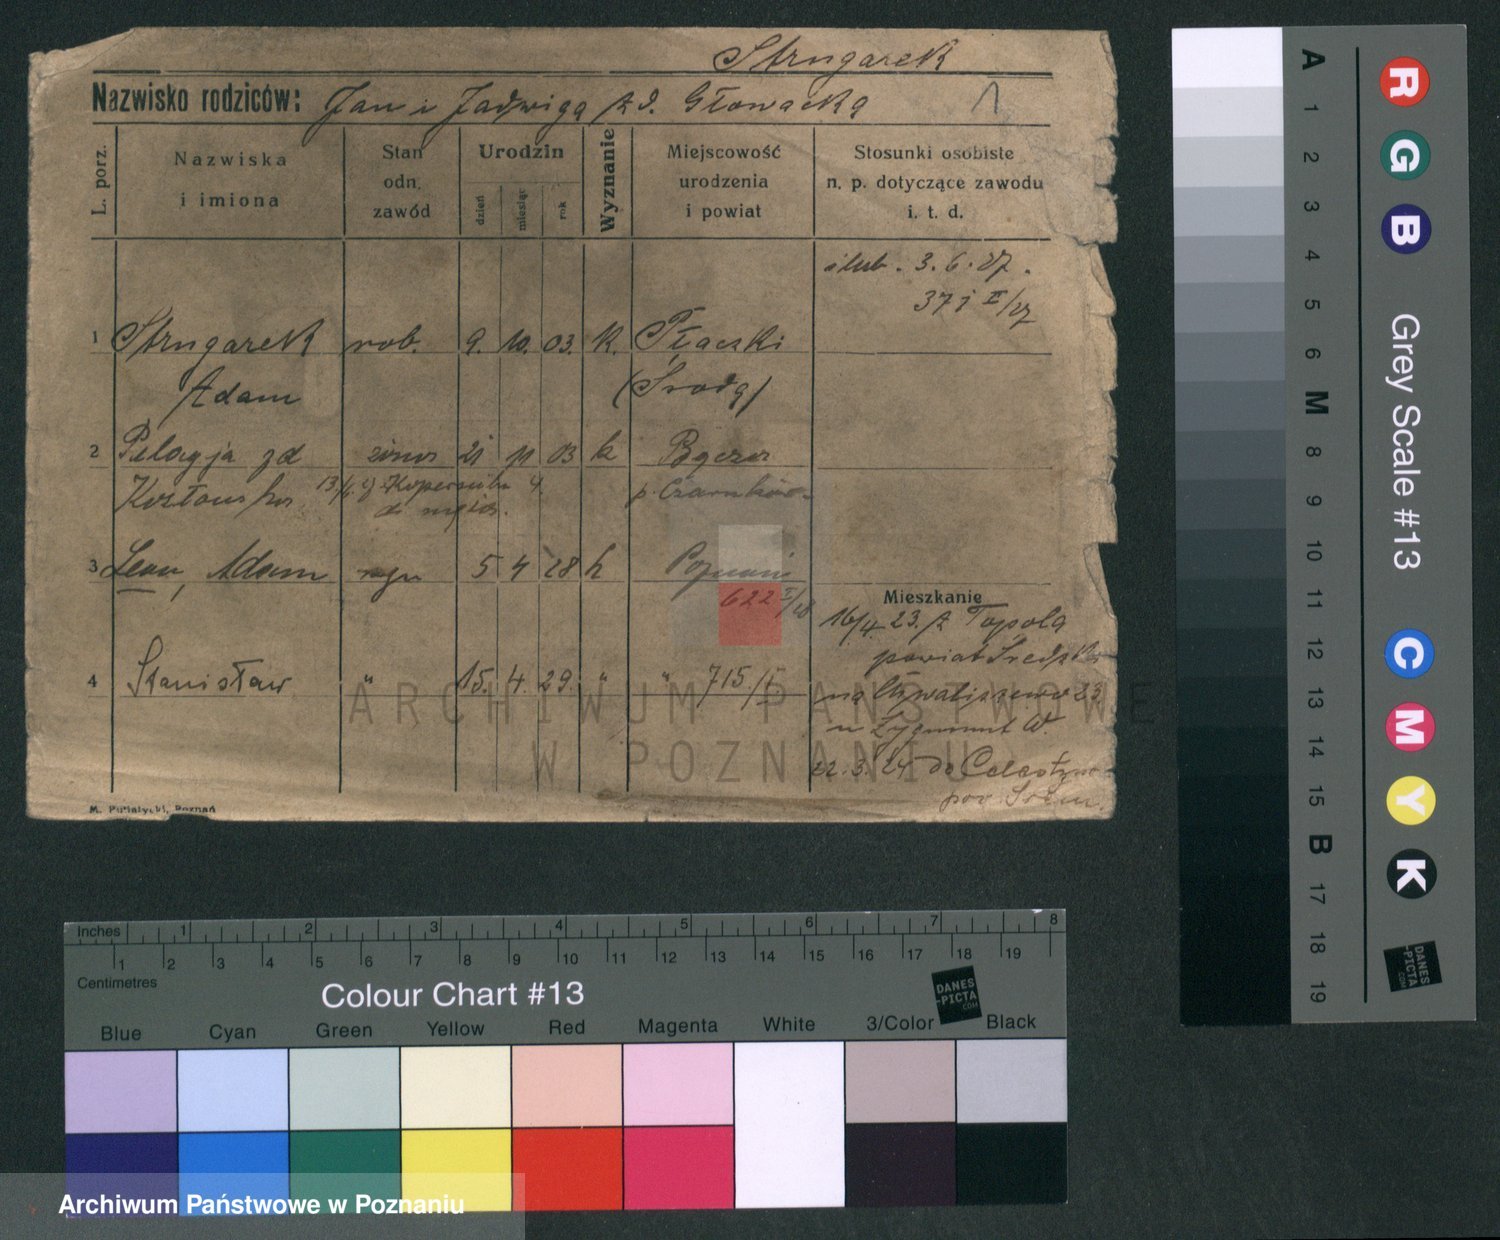 Strugarek
Nazwisko rodziców: Jan i Jadwiga z d. Głowacka 1
L. porz.
Nazwiska i imiona
Stan odn. zawód
Urodzin
dzień miesiąc rok
Wyznanie
Miejscowość urodzenia i powiat
Stosunki osobiste n. p. dotyczące zawodu i. t. d.
ślub. 3.6.27.
1 Strugarek rob. 9. 10. 03. k.
Adam (Środa)
2 Pelagja zd żona 21 11 03 k
13/6 ul. Kopernika 4
do męża.
p. Czarnków
3 Leon, Adam 5 4 28 k Poznań
622 I/28
Mieszkanie
16/4 23. z Topola
powiat Średzki
4 Stanisław " 15. 4. 29. " " 715/I
na Chwaliszewo 23
u Zygmunt W.
22.3.24 do Celestyn
pow. Śrem.
M. Putiatycki, Poznań
ARCHIWUM PAŃSTWOWE
W POZNANIU
A 1 2 3 4 5 6 M 8 9 10 11 12 13 14 15 B 17 18 19
R G B Grey Scale #13 C M Y K
DANES-PICTA.COM
Inches 1 2 3 4 5 6 7 8
1 2 3 4 5 6 7 8 9 10 11 12 13 14 15 16 17 18 19
Centimetres
Colour Chart #13
DANES-PICTA.COM
Blue Cyan Green Yellow Red Magenta White 3/Color Black
Archiwum Państwowe w Poznaniu